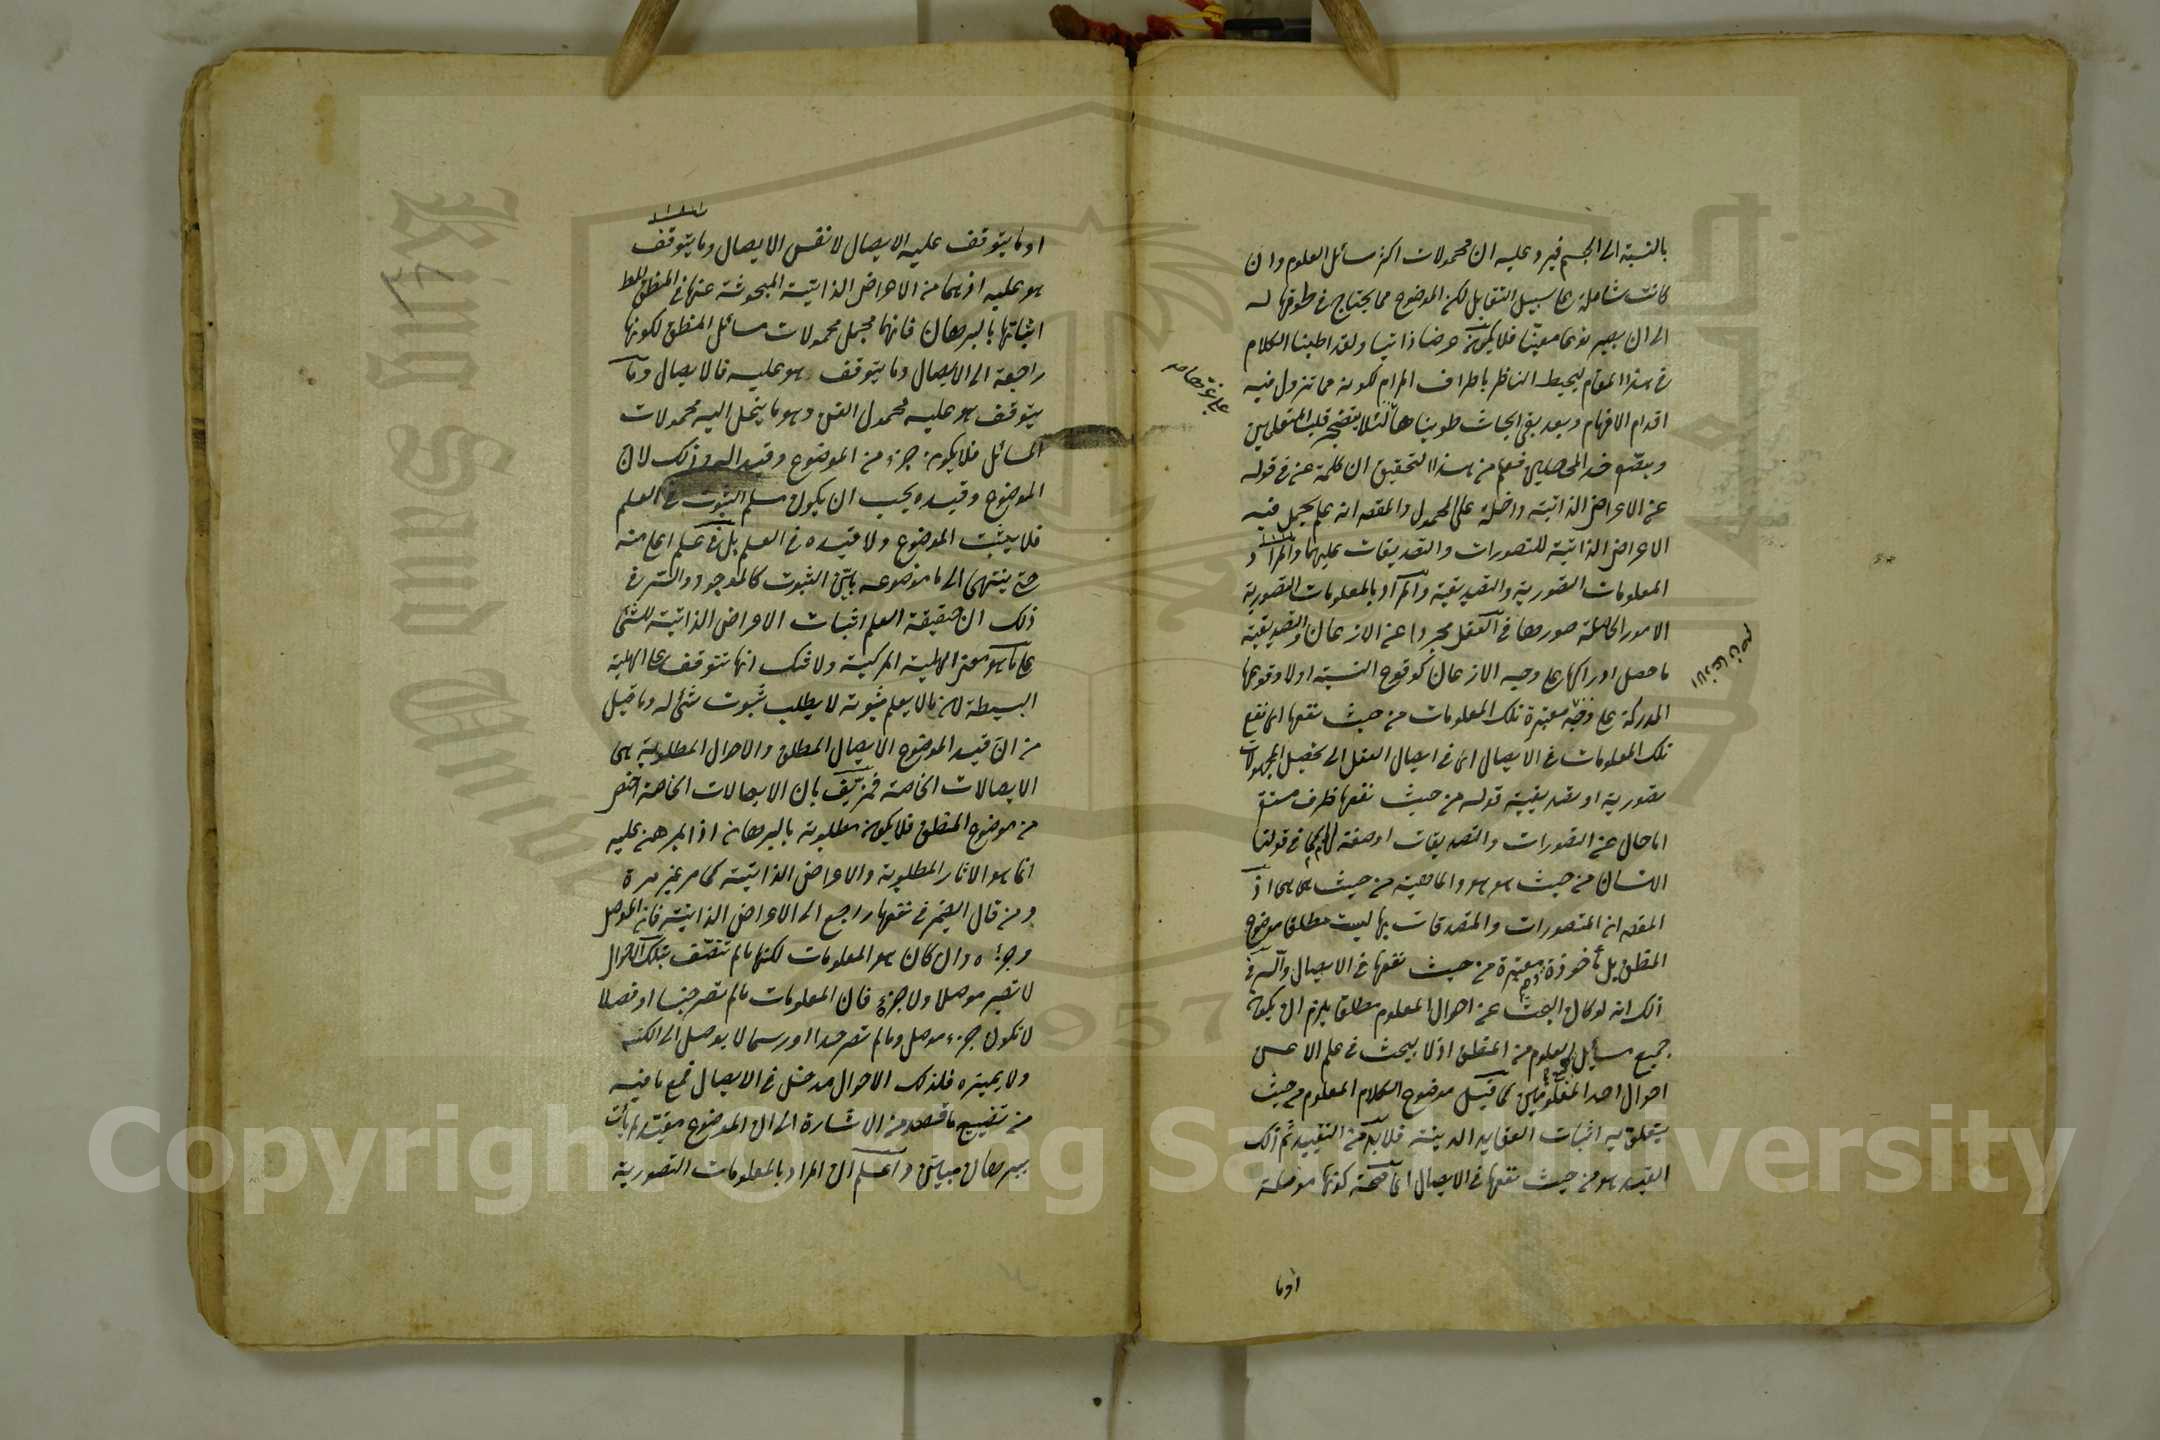 بالنسبة الى الجسم فيرد عليه ان محمولات اكثر مسائل العلوم وان
كانت شاملة على سبيل التقابل لكن الموضوع مما يحتاج في طروقها له
الى ان يصير نوعا معينا فلا يكون عرضا ذاتيا ولقد اطنبنا الكلام
في هذا المقام ليحيط الناظر باطراف المرام لكونه مما تزول فيه
اقدام الافهام وبعد بقي ابحاث طويناها لئلا يتضجر قلب المتعلمين
المحصلين فعلم من هذا التحقيق ان كلمة عن في قوله
عن الاعراض الذاتية داخلة على المحمول والمقصد انه علم يحمل فيه
الاعراض الذاتية للتصورات والتصديقات عليهما والمراد
المعلومات التصورية والتصديقية والمراد بالمعلومات التصورية
الامور الحاصلة صورها في العقل مجردا عن الاذعان والتصديقية
ما حصل ادراكها على وجه الاذعان كوقوع النسبة او لا وقوعها
المدركة على وجه معتبرة تلك المعلومات من حيث نفعها اى نفع
تلك المعلومات في الايصال اى في ايصال العقل الى تحصيل المجهولات
تصورية او تصديقية قوله من حيث نفعها ظرف مستقر
اما حال عن التصورات والتصديقات او صفة لهم كما في قولنا
الانسان من حيث هو هو والماهية من حيث هى هى اذ
المقصد ان المتصورات والمتصدقات بها ليست مطلقا موضوع
المنطق بل مأخوذة معتبرة من حيث نفعها في الايصال والسر في
ذلك انه لو كان البحث عن احوال المعلوم مطلقا يلزم ان يكون
جميع مسائل العلوم من المنطق اذ لا يبحث في علم الا عن
احوال احد المعلومين كما قيل موضوع الكلام المعلوم من حيث
يتعلق به اثبات العقايد الدينية فلا بد من التقييد ثم ذلك
القيد هو من حيث نفعها في الايصال اى صحة كونها موصلة
اوما
او ما يتوقف عليه الايصال لا نفس الايصال وما يتوقف
هو عليه اذ هما من الاعراض الذاتية المبحوثة عنها في المنطق
اثباتها بالبرهان فانهما مجمل محمولات مسائل المنطق لكونها
راجعة الى الايصال وما يتوقف هو عليه فالايصال وما
يتوقف هو عليه محمول الفن وهو ما ينحل اليه محمولات
المسائل فلا يكون جزء من الموضوع وقيد اليه وذلك لان
الموضوع وقيده يجب ان يكون مسلم الثبوت في العلم
فلا يثبت الموضوع ولا قيده في العلم بل في علم اعلى منه
حتى ينتهى الى ما موضوعه بيّن الثبوت كالموجود والسر في
ذلك ان حقيقة العلم اثبات الاعراض الذاتية للشئ
على ما هو معنى الهلية المركبة ولا شك انها تتوقف على الهلية
البسيطة لان ما لا يعلم ثبوته لا يطلب ثبوت شئ له وما قيل
من ان قيد الموضوع الايصال المطلق والاحوال المطلوبة هى
الايصالات الخاصة فمزيّف بان الايصالات الخاصة اخص
من موضوع المنطق فلا يكون مطلوبة بالبرهان اذ المبرهن عليه
انما هو الاثار المطلوبة والاعراض الذاتية كما مر غير مرة
ومن قال الضمير في نفعها راجع الى الاعراض الذاتية فان الموصل
وجزئه وان كان هو المعلومات لكنها ما لم تتصف بتلك الاحوال
لا تصير موصلا ولا جزئه فان المعلومات ما لم تصر جنسا او فصلا
لا تكون جزء موصل وما لم تصر حدا او رسما لا يوصل الى الكنه
ولا يميزه فلتلك الاحوال مدخل في الايصال فمع ما فيه
من تضييع ما قصد من الاشارة الى ان الموضوع مقيد
واعلم ان المراد بالمعلومات التصورية
Copyright © King Saud University
King Saud University
1957